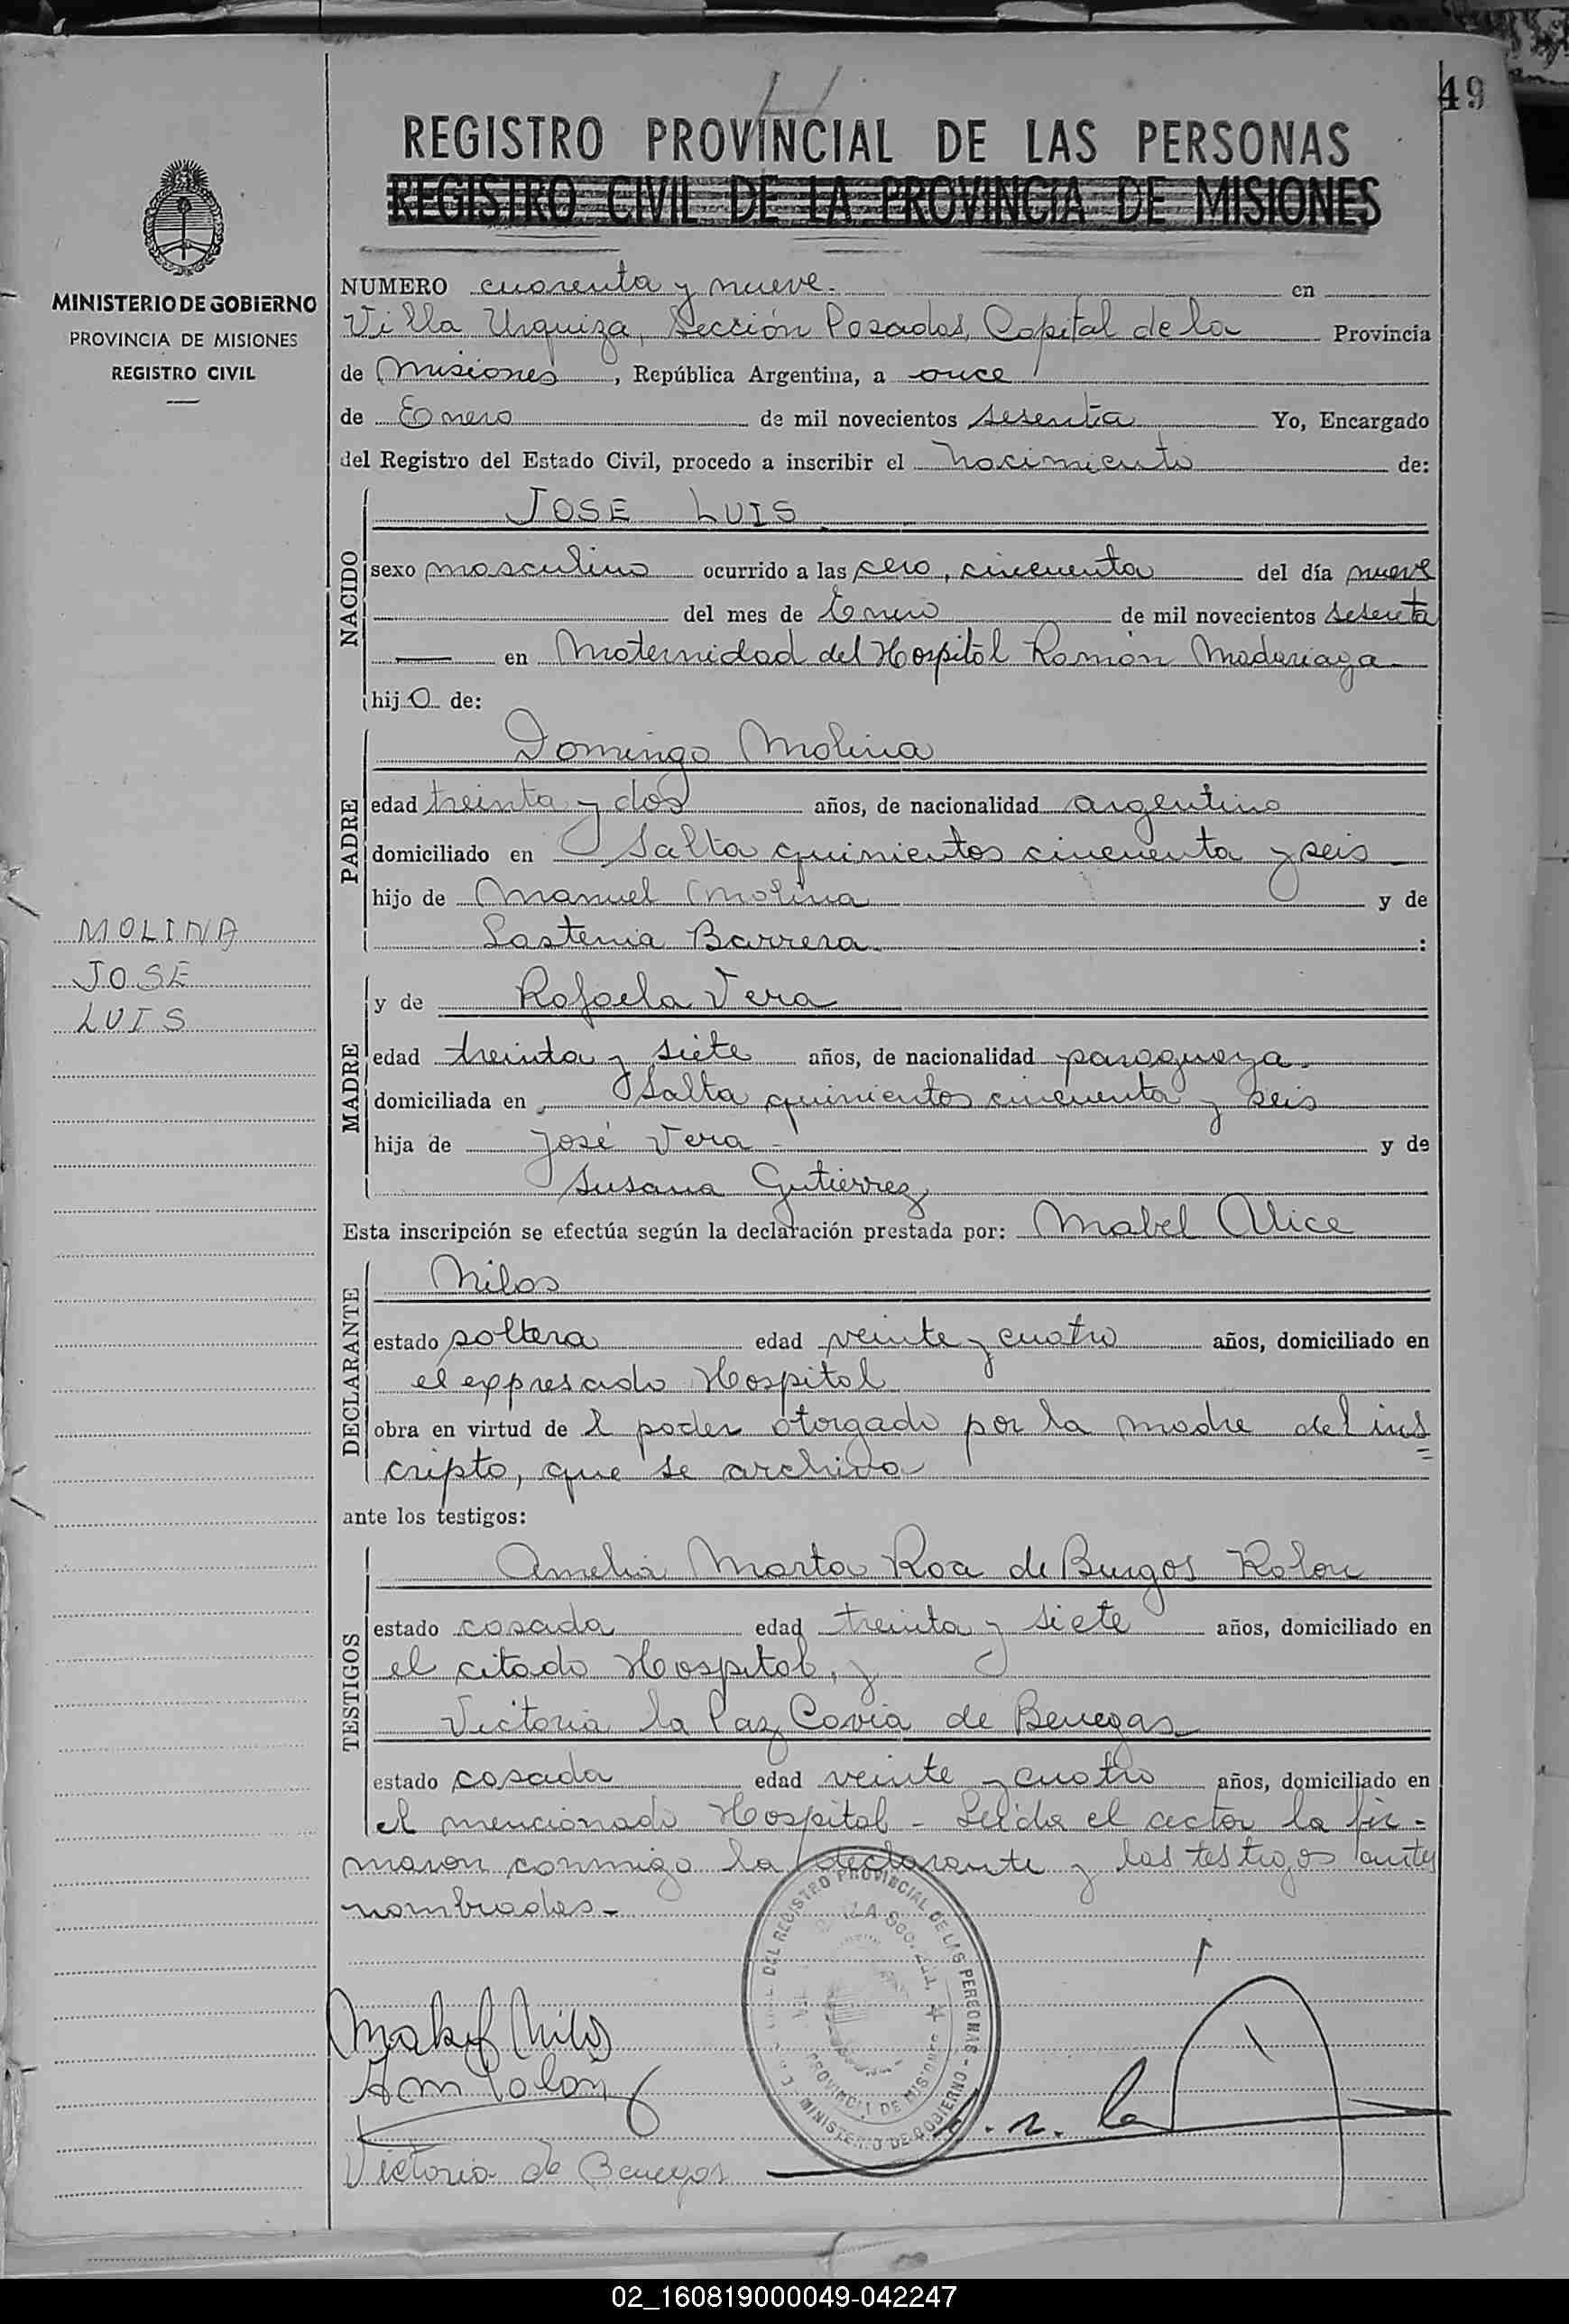 49
REGISTRO PROVINCIAL DE LAS PERSONAS
REGISTRO CIVIL DE LA PROVINCIA DE MISIONES
MINISTERIO DE GOBIERNO
PROVINCIA DE MISIONES
REGISTRO CIVIL
MOLINA
JOSE
LUIS
NUMERO cuarenta y nueve. en
Villa Urquiza, Sección Posadas, Capital de la Provincia
de Misiones, República Argentina, a once
de Enero de mil novecientos sesenta Yo, Encargado
del Registro del Estado Civil, procedo a inscribir el Nacimiento de:
NACIDO
JOSE LUIS
sexo masculino ocurrido a las cero, cincuenta del día nueve
del mes de Enero de mil novecientos sesenta
en Maternidad del Hospital Ramón Madariaga
hijo de:
PADRE
Domingo Molina
edad treinta y dos años, de nacionalidad argentino
domiciliado en Salta quinientos cincuenta y seis
hijo de Manuel Molina y de
Lastenia Barrera :
MADRE
y de Rafaela Vera
edad treinta y siete años, de nacionalidad paraguaya
domiciliada en Salta quinientos cincuenta y seis
hija de José Vera y de
Susana Gutiérrez
Esta inscripción se efectúa según la declaración prestada por: Mabel Alice
DECLARANTE
Milos
estado soltera edad veinte y cuatro años, domiciliado en
el expresado Hospital
obra en virtud de l poder otorgado por la madre del ins=
cripto, que se archiva
ante los testigos:
TESTIGOS
Amelia Marta Roa de Burgos Rolon
estado casada edad treinta y siete años, domiciliado en
el citado Hospital, y
Victoria la Paz Covia de Benegas
estado casada edad veinte y cuatro años, domiciliado en
el mencionado Hospital - Leída el acta la fir-
maron conmigo la declarante y las testigos antes
nombradas -
DEL REGISTRO PROVINCIAL DE LAS PERSONAS
PROVINCIA DE MISIONES
MINISTERIO DE GOBIERNO
Mabel Milos
Victoria de Benegas
02_160819000049-042247